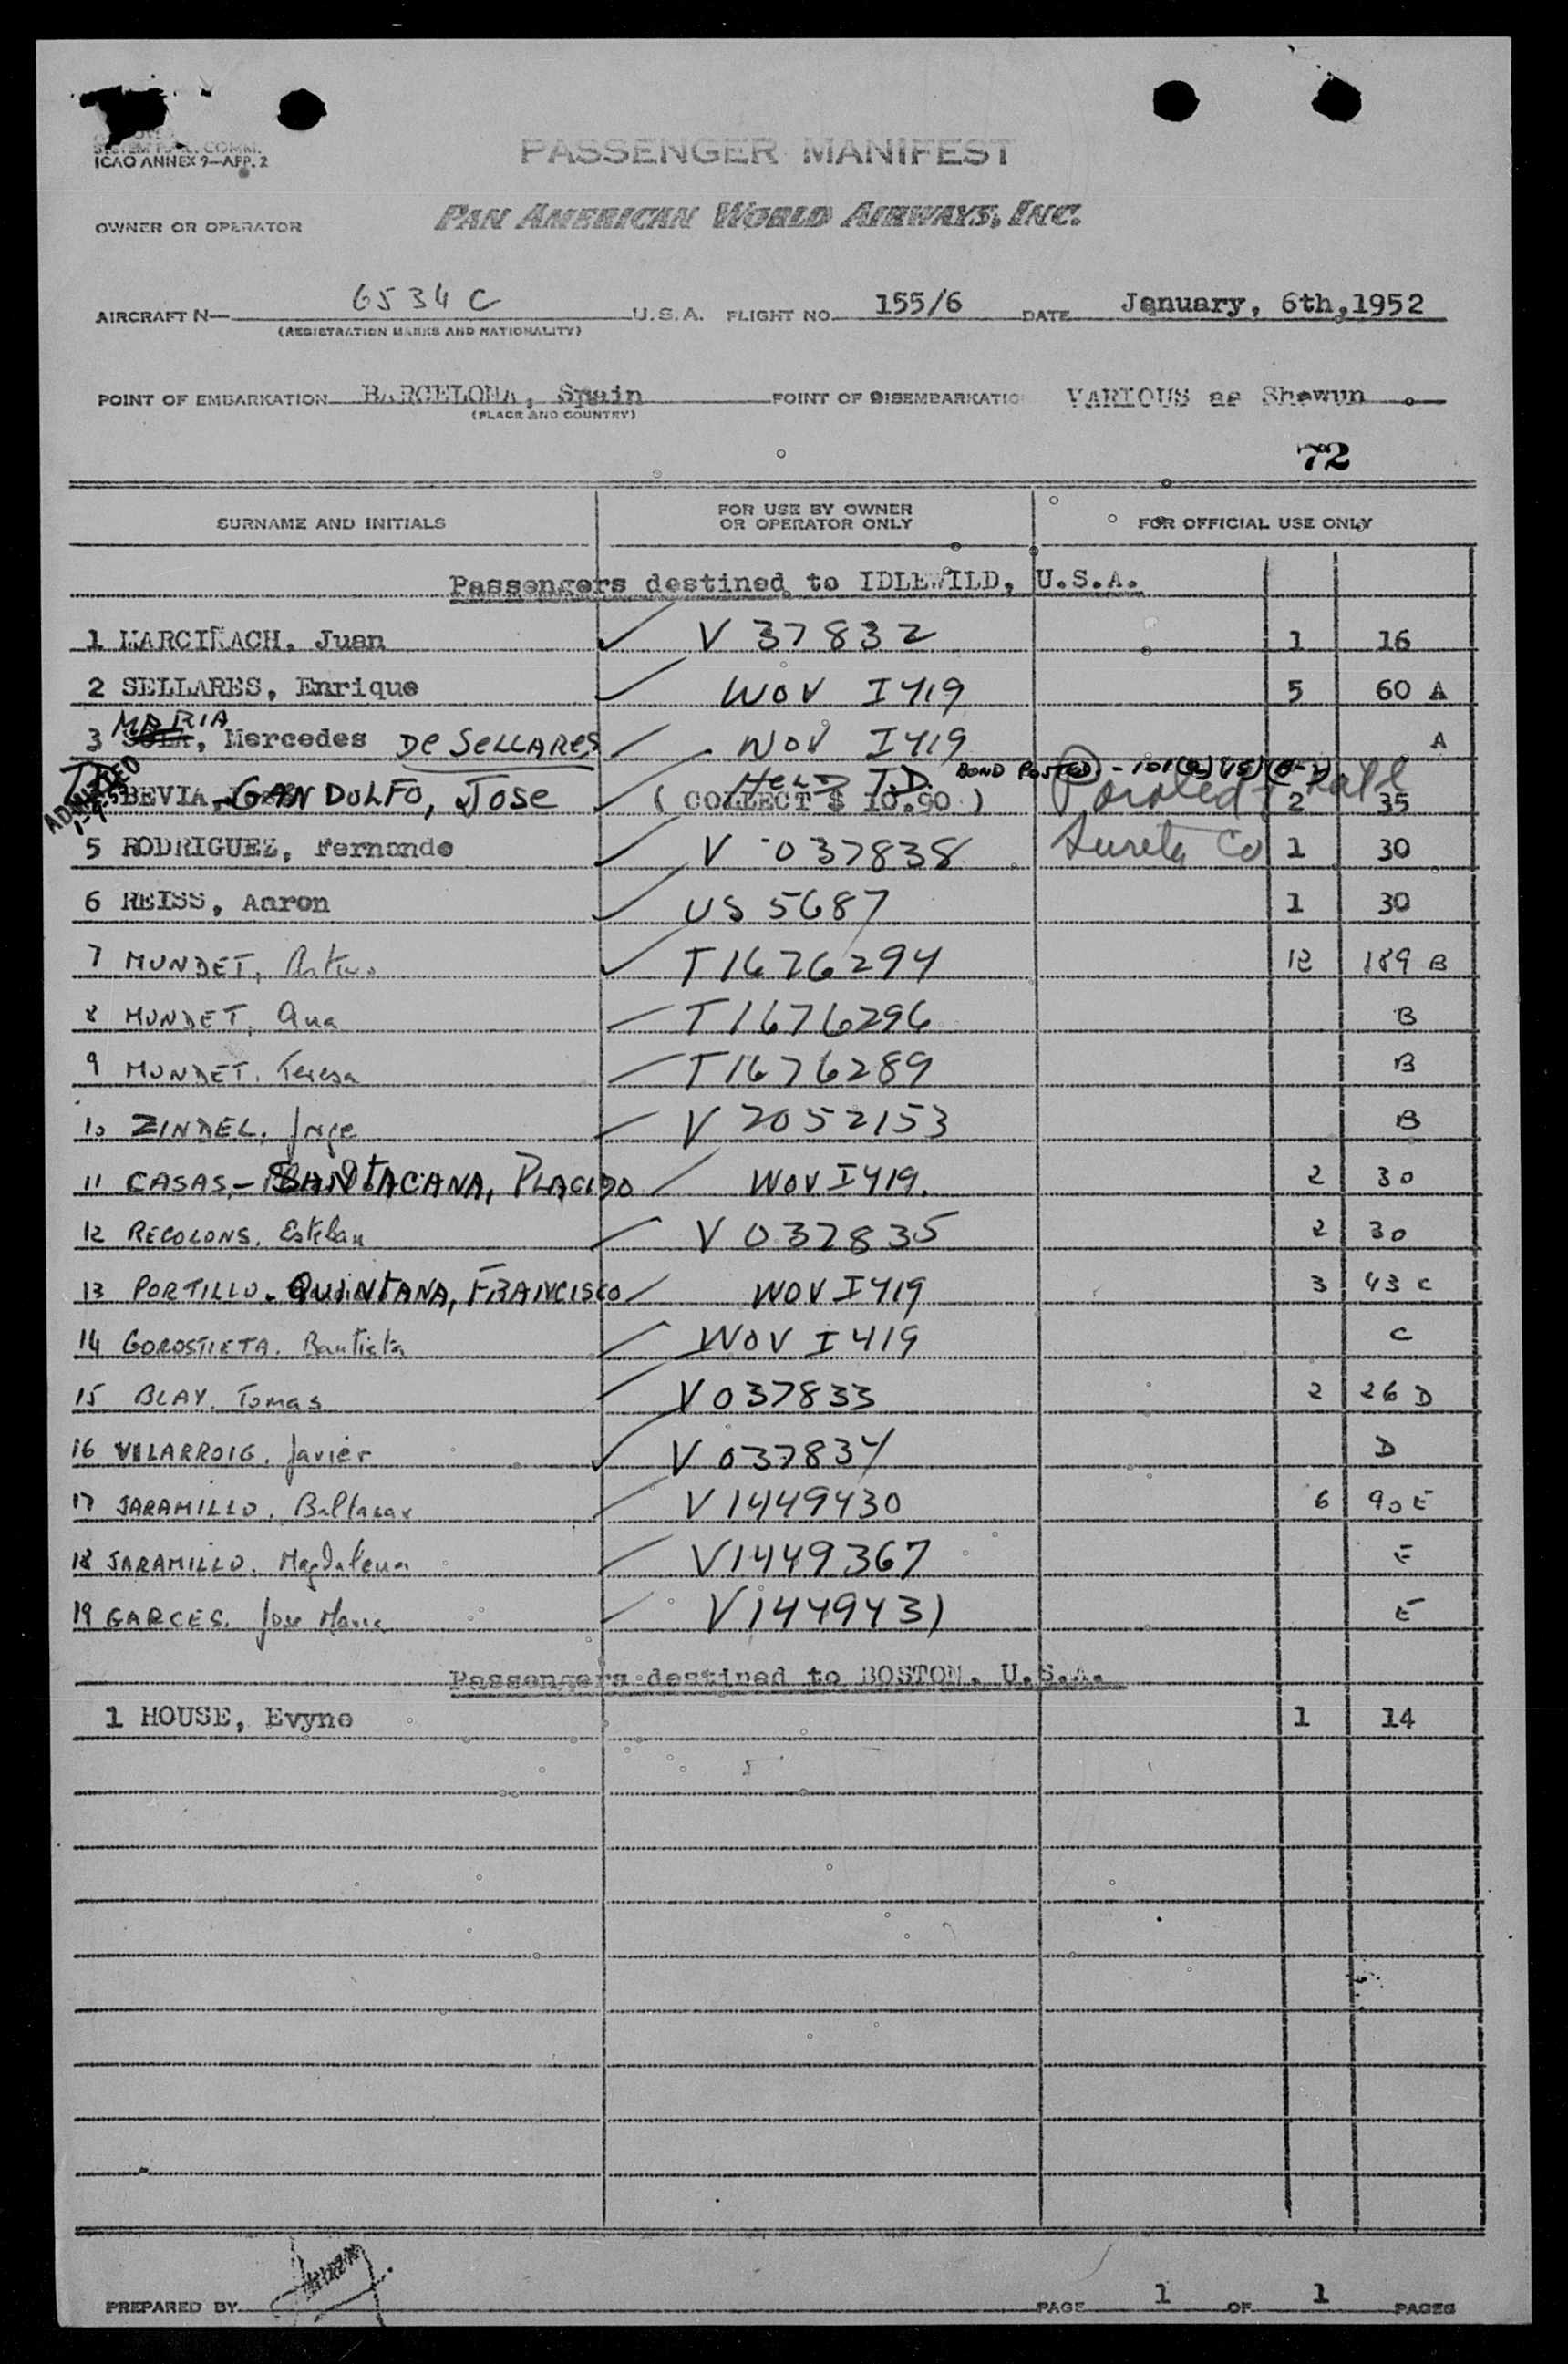 ICAO ANNEX 9—APP. 2
PASSENGER MANIFEST
OWNER OR OPERATOR PAN AMERICAN WORLD AIRWAYS, INC.
AIRCRAFT N— 6534C U.S.A. FLIGHT NO. 155/6 DATE January, 6th, 1952
(REGISTRATION MARKS AND NATIONALITY)
POINT OF EMBARKATION BARCELONA, Spain POINT OF DISEMBARKATIO VARIOUS as Shewun
(PLACE AND COUNTRY)
72
SURNAME AND INITIALS FOR USE BY OWNER OR OPERATOR ONLY FOR OFFICIAL USE ONLY
Passengers destined to IDLEWILD, U.S.A.
1 MARCIÑACH, Juan V 37832 1 16
2 SELLARES, Enrique WOV I419 5 60 A
3 MARIA, Mercedes De SELLARES WOV I419 A
HELD T.D. BOND POSTED
BEVIA - GANDOLFO, Jose (COLLECT $ 10.90) Paroled 2 35
ADMITTED
5 RODRIGUEZ, Fernando V 037838 Surety Co 1 30
6 REISS, Aaron US 5687 1 30
7 MUNDET, Arturo T1676294 12 189 B
8 MUNDET, Ana T1676296 B
9 MUNDET, Teresa T1676289 B
10 ZINDEL, Inge V 2052153 B
11 CASAS - SANTACANA, PLACIDO WOV I419. 2 30
12 RECOLONS, Esteban V 037835 2 30
13 PORTILLO - QUINTANA, FRANCISCO WOV I419 3 43 C
14 GOROSTIETA, Bautista WOV I419 C
15 BLAY, Tomas V 037833 2 26 D
16 VILARROIG, Javier V 037834 D
17 JARAMILLO, Baltasar V1449430 6 90 E
18 JARAMILLO, Magdalena V1449367 E
19 GARCES, Jose Maria V1449431 E
Passengers destined to BOSTON, U.S.A.
1 HOUSE, Evyne 1 14
PREPARED BY PAGE 1 OF 1 PAGES